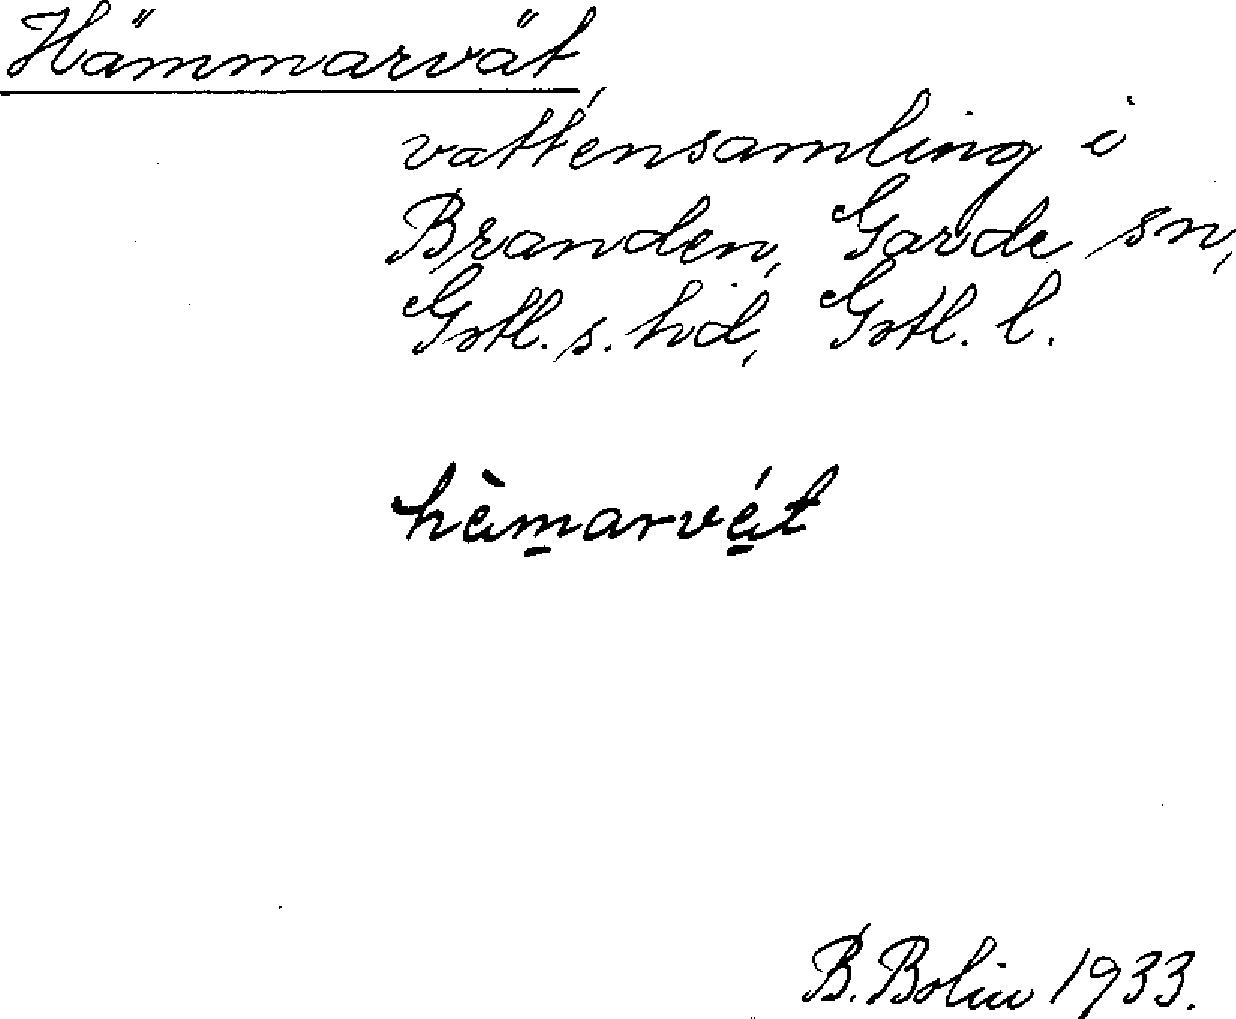 Hämmarvät,
vattensamling i
Branden, Garde sn,
Gotl. s. hd, Gotl. l.
hä̀m̱arvä̱́t
B. Bolin 1933.